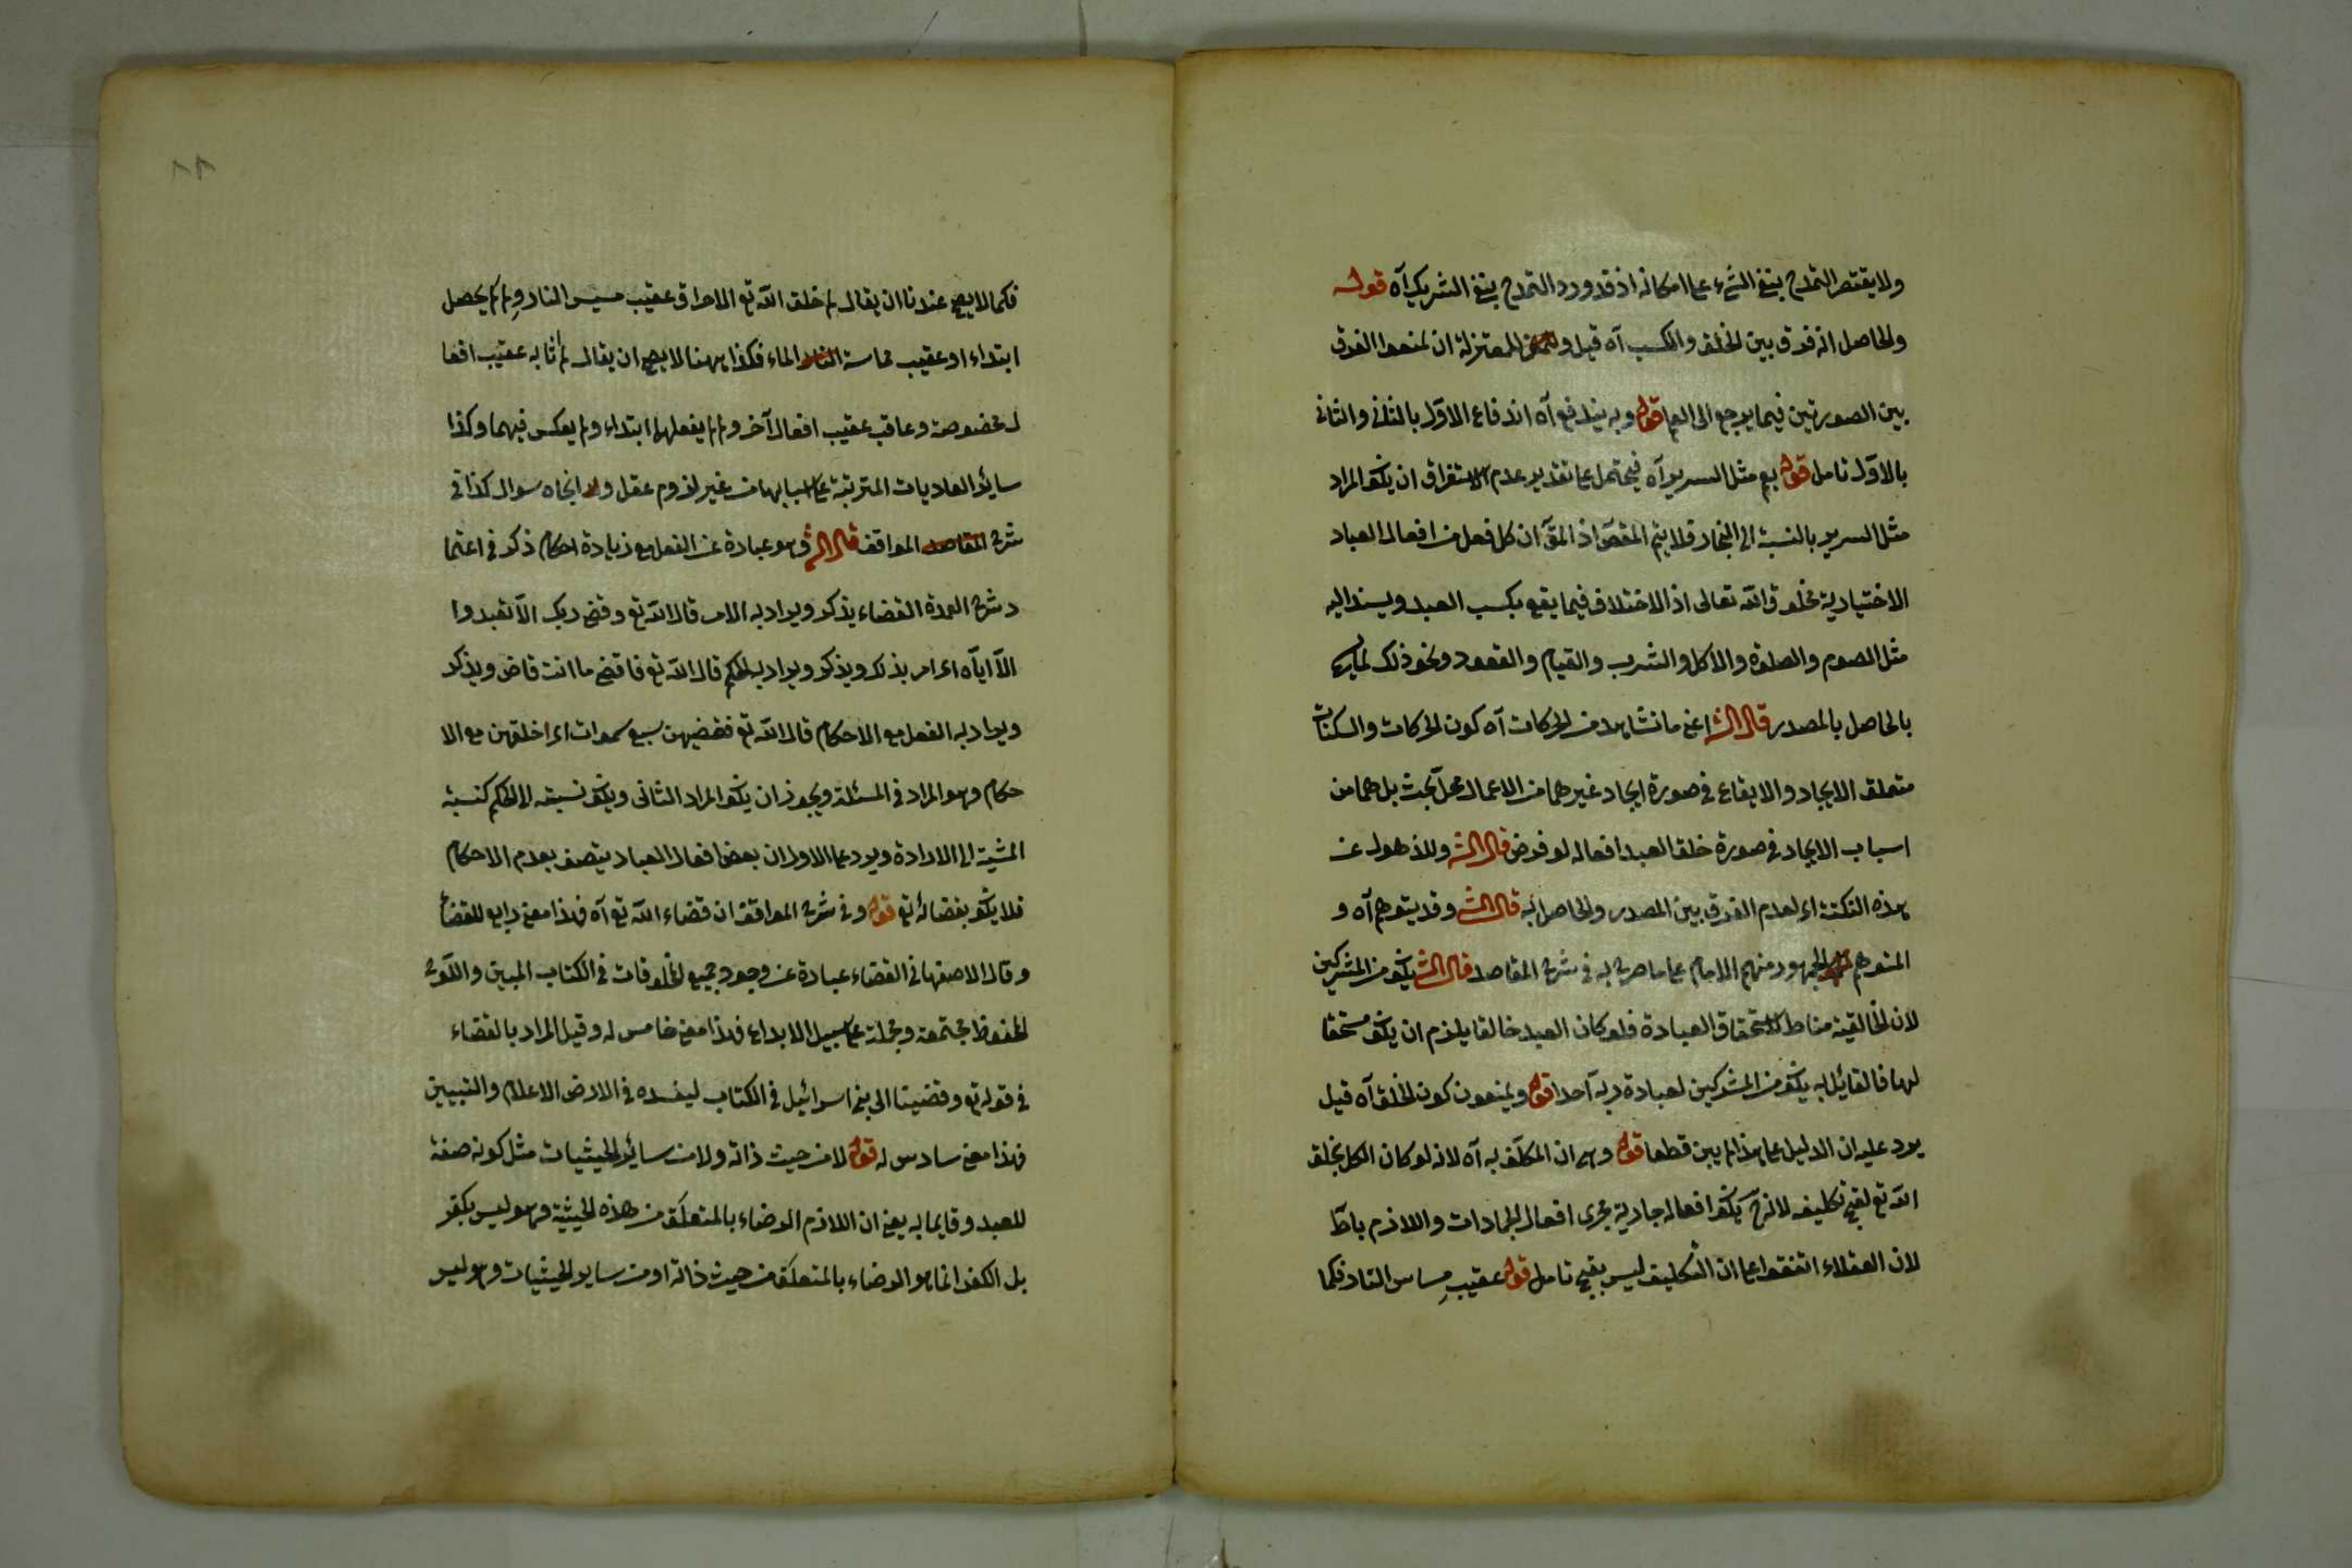 ولا يقتصر التمدح بنفي الشيء على امكانه اذ قد ورد التمدح بنفي الشريك آه قوله
والحاصل انه فرق بين الخلق والكسب آه قيل للمعتزلة ان لمنعوا الفرق
بين الصورتين فيما يرجع الى قوله وبه يندفع آه اندفاع الاول بالثاني والثانى
بالاول تامل قوله مثل السرير آه فيحتمل على تقدير عدم الاستغراق ان يكو المراد
مثل السرير بالنسبة الى النجار فلا يتم المقصو اذ المقـ ان كل فعل من افعال العباد
الاختيارية مخلوق الله تعالى اذ الاختلاف فيما يقع بكسب العبد ويسند اليه
مثل الصوم والصلوة والاكل والشرب والقيام والقعود ونحو ذلك
بالحاصل بالمصدر قال الشـ اعنى ما نشاهد من الحركات آه كون الحركات والسكنات
متعلق الايجاد والايقاع فى صورة ايجاد غيرهما من الاعمال محل بحث بل هما من
اسباب الايجاد فى صورة خلق العبد افعاله لو فرض قال الشـ وللذهول عن
هذه النكتة اى لعدم الفرق بين المصدر والحاصل به قال الشـ وقد يتوهم آه و
المتوهم الجمهور منهم الامام على ما صرح به فى شرح المقاصد قال الشـ يكو من المشركين
لان الخالقية مناط لاستحقاق العبادة فلو كان العبد خالقا يلزم ان يكو مستحقا
لها فالقايل به يكو من المشركين لعبادة ربه احدا قوله ويمنعون كون الخلق آه قيل
يرد عليه ان الدليل على هذا لم يبين قطعا قوله وهى ان المكلف به آه لانه لو كان الكل بخلق
الله تع لقبح تكليفه لانه ح يكو افعاله جارية مجرى افعال الجمادات واللازم باط
لان العقلاء اتفقوا على ان التكليف ليس بقبيح تامل قوله عقيب مساس النار فكما
فكما لا يصح عندنا ان يقال لم خلق الله تع الاحراق عقيب مسيس النار ولم لم يحصل
ابتداء او عقيب مماسة الماء فكذا ههنا لا يصح ان يقال لم اثابه عقيب افعا
ل مخصوصة وعاقب عقيب افعال آخر ولم لم يفعلهما ابتداء ولم يعكس فيهما وكذا
سائر العاديات المترتبة على اسبابها من غير لزوم عقل ولا اتجاه سوال كذا فى
شرح المواقف قال الشـ وهو عبارة عن الفعل مع زيادة احكام ذكر فى اعتما
د شرح العمدة القضاء يذكر ويراد به الامر قال الله تع وقضى ربك الا تعبدوا
الا اياه اى امر بذلك ويذكر ويراد به الحكم قال الله تع فاقض ما انت قاض ويذكر
ويراد به الفعل مع الاحكام قال الله تع فقضيهن سبع سموات اى خلقهن مع الا
حكام وهو المراد فى المسئلة ويجوز ان يكو المراد الثانى ويكو نسبته الى الحكم كنسبة
المشية الى الارادة ويرد على الاول ان بعض افعال العباد يتصف بعدم الاحكام
فلا يكو بقضائه تع قوله وفى شرح المواقف ان قضاء الله تع آه فهذا معنى رابع للقضاء
وقال الاصفهانى القضاء عبارة عن وجود جميع المخلوقات فى الكتاب المبين واللوح
المحفوظ مجتمعة ومجملة على سبيل الابداع فهذا معنى خامس له وقيل المراد بالقضاء
فى قوله تع وقضينا الى بنى اسرائيل فى الكتاب ليفسده فى الارض الاعلام والتبيين
فهذا معنى سادس له قوله لا من حيث ذاته ولا من سائر الحيثيات مثل كونه صفة
للعبد وقايما به يعنى ان اللازم الرضاء بالمتعلق من هذه الحيثية وهو ليس بكفر
بل الكفر انما هو الرضاء بالمتعلق من حيث ذاته او من ساير الحيثيات وهو ليس